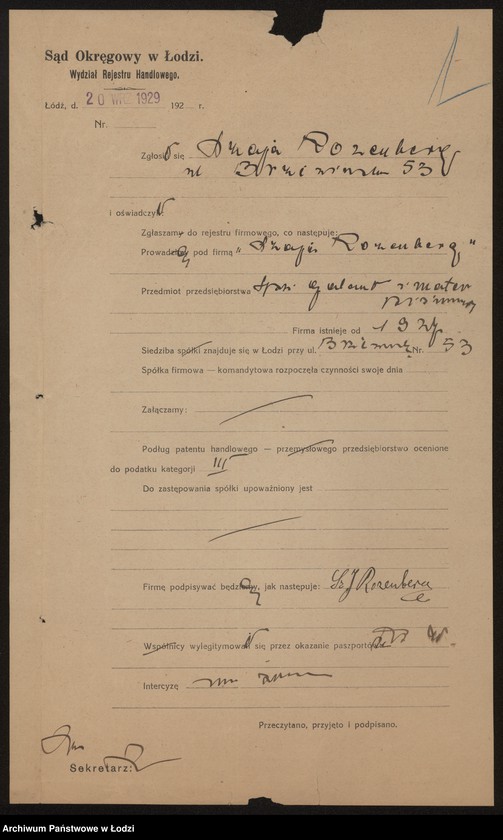 Sąd Okręgowy w Łodzi.
Wydział Rejestru Handlowego.
Łódź, d. 20 WRZ 1929 192 r.
Nr.
Zgłosił się Szaja Rozenberg
ul Brzezińska 53
i oświadczył:
Zgłaszamy do rejestru firmowego, co następuje:
Prowadzę pod firmą „Szaja Rozenberg"
Przedmiot przedsiębiorstwa
Firma istnieje od
Siedziba spółki znajduje się w Łodzi przy ul. Nr. 53
Spółka firmowa — komandytowa rozpoczęła czynności swoje dnia
Załączamy:
Podług patentu handlowego — przemysłowego przedsiębiorstwo ocenione
do podatku kategorji III
Do zastępowania spółki upoważniony jest
Firmę podpisywać będę, jak następuje: Sz J Rozenberg
Wspólnicy wylegitymował się przez okazanie paszportów
Intercyzę
Przeczytano, przyjęto i podpisano.
Sekretarz:
Archiwum Państwowe w Łodzi